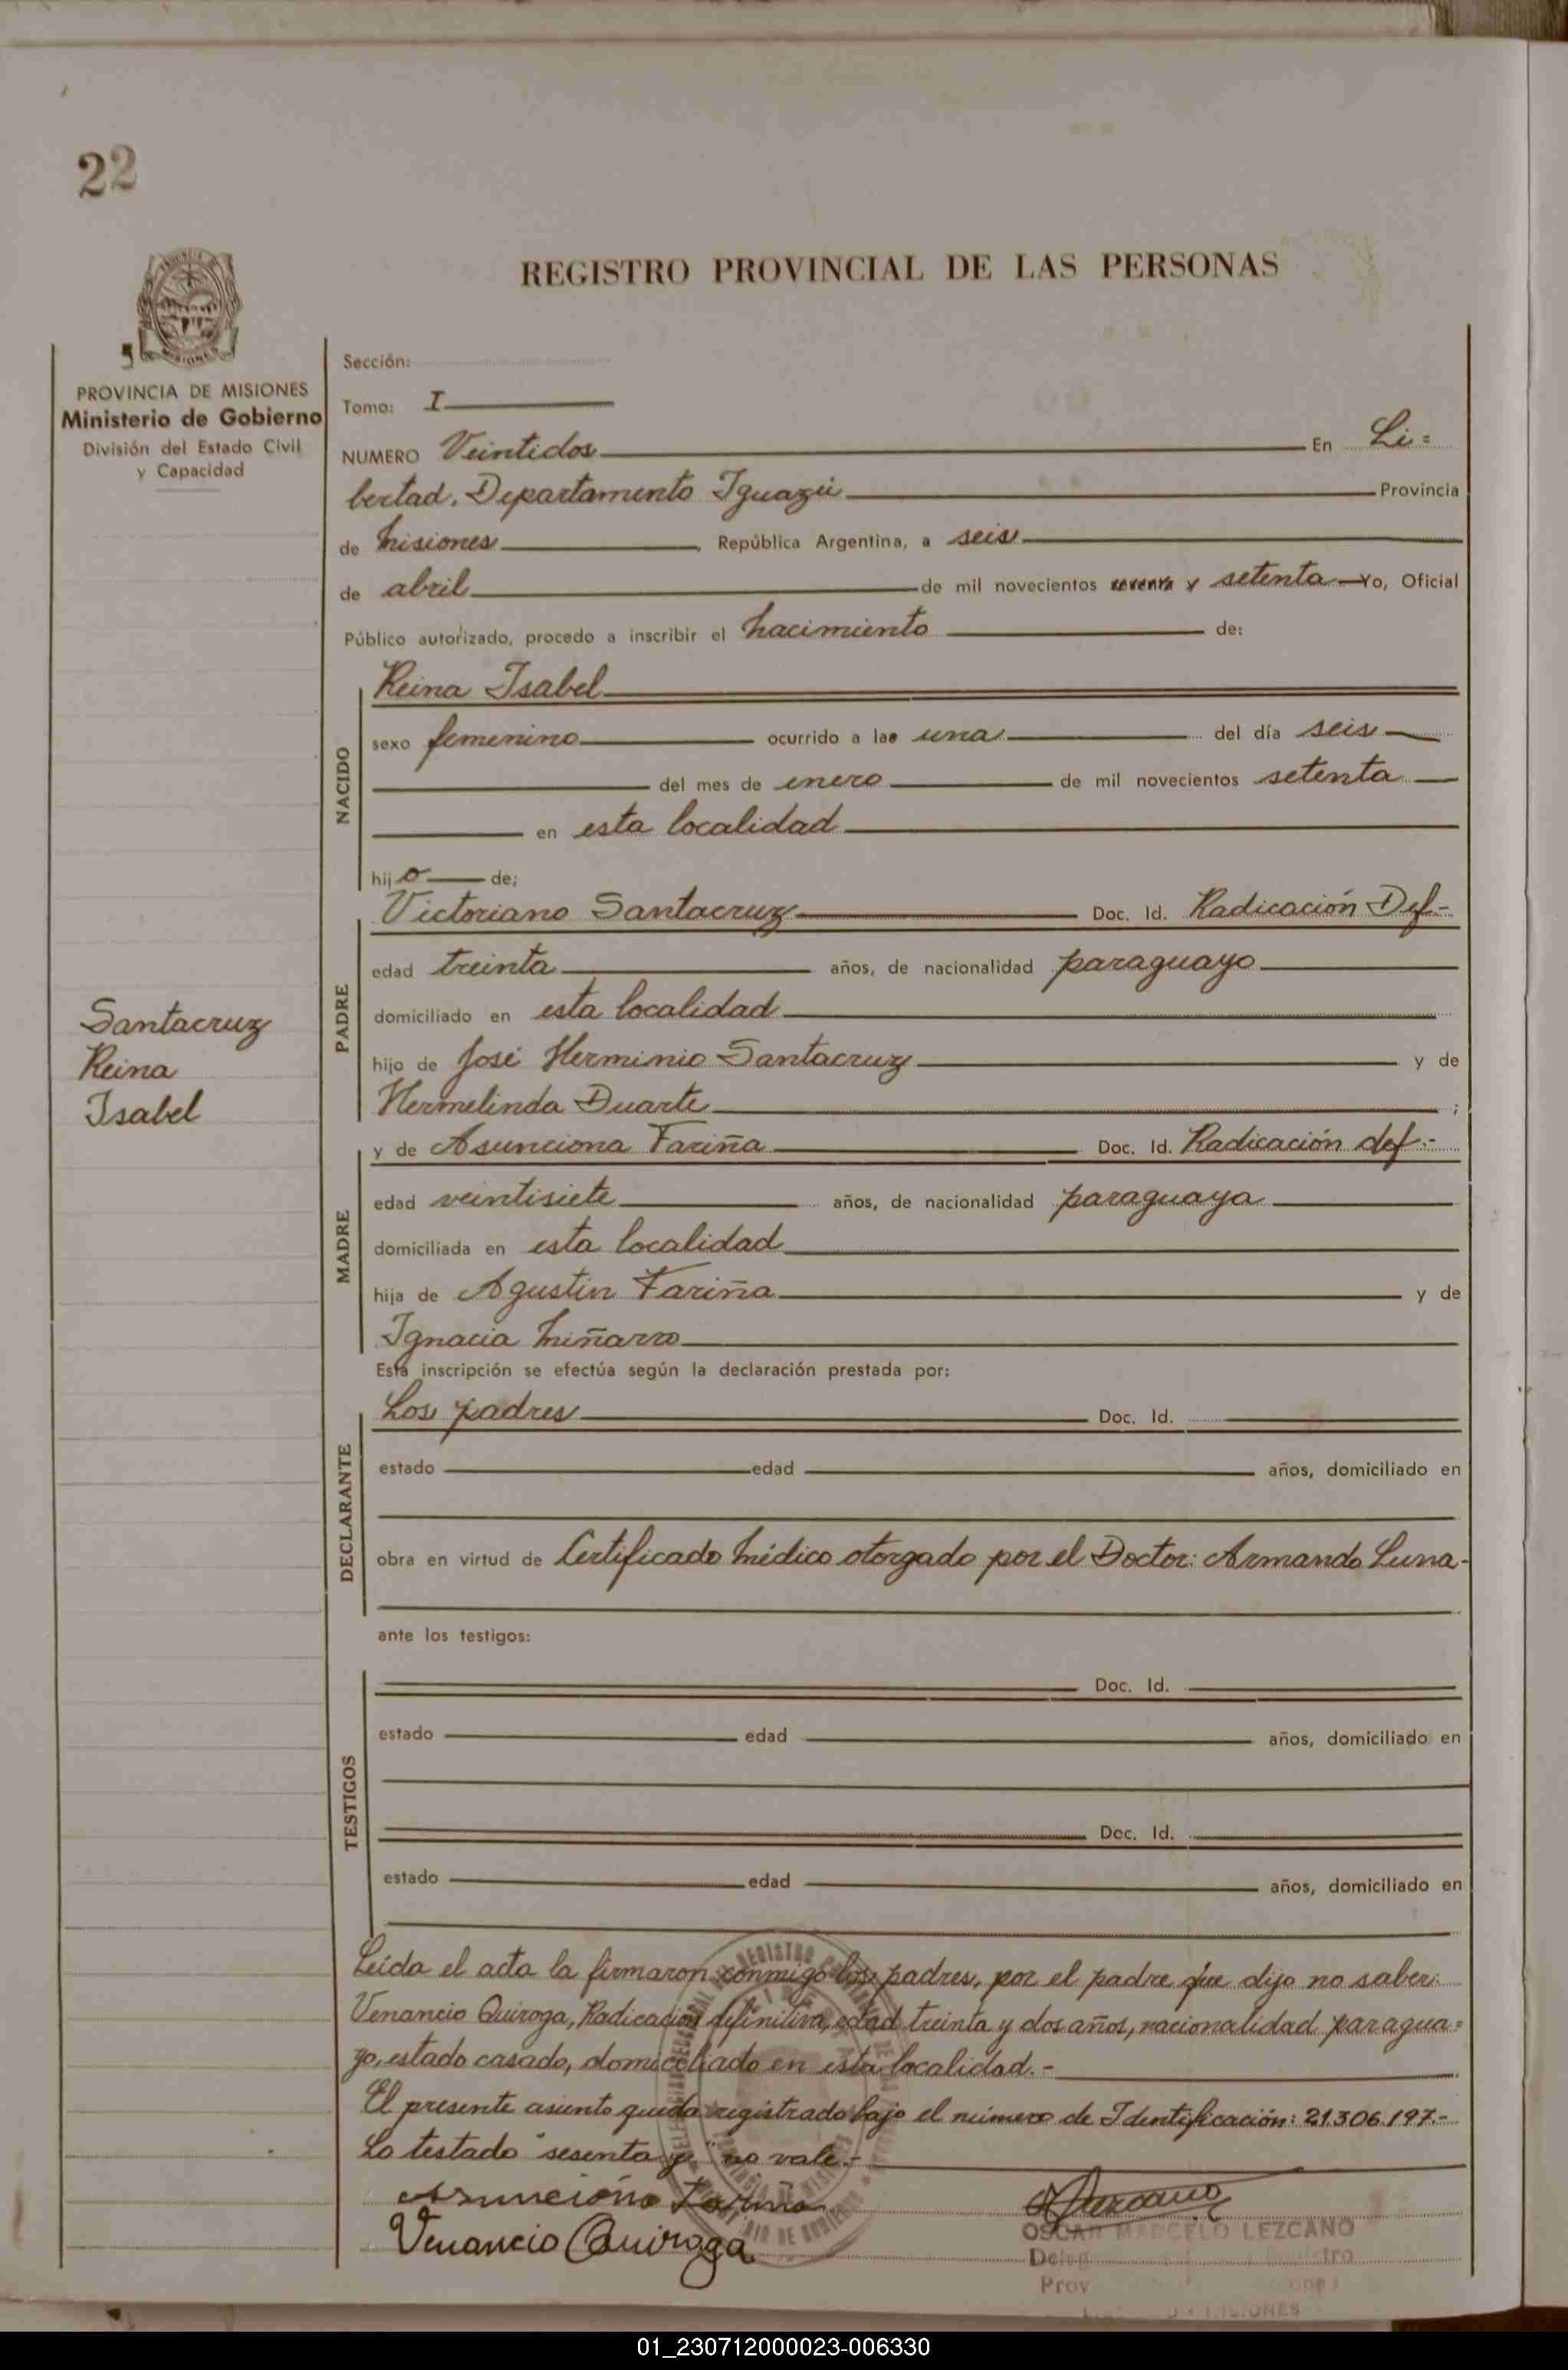 22
REGISTRO PROVINCIAL DE LAS PERSONAS
PROVINCIA DE MISIONES
Ministerio de Gobierno
División del Estado Civil
y Capacidad
Santacruz
Reina
Isabel
Sección:
Tomo: I
NUMERO Veintidos En Li=
bertad. Departamento Iguazú Provincia
de Misiones, República Argentina, a seis
de abril de mil novecientos sesenta y setenta Yo, Oficial
Público autorizado, procedo a inscribir el Nacimiento de:
NACIDO
Reina Isabel
sexo femenino ocurrido a las una del día seis
del mes de enero de mil novecientos setenta
en esta localidad
hijo de;
PADRE
Victoriano Santacruz Doc. Id. Radicación Def-
edad treinta años, de nacionalidad paraguayo
domiciliado en esta localidad
hijo de José Herminio Santacruz y de
Hermelinda Duarte ;
MADRE
y de Asunciona Fariña Doc. Id. Radicación def.-
edad veintisiete años, de nacionalidad paraguaya
domiciliada en esta localidad
hija de Agustin Fariña y de
Ignacia Miñarro
Esta inscripción se efectúa según la declaración prestada por:
DECLARANTE
Los padres Doc. Id.
estado edad años, domiciliado en
obra en virtud de Certificado Médico otorgado por el Doctor: Armando Luna-
ante los testigos:
TESTIGOS
Doc. Id.
estado edad años, domiciliado en
Doc. Id.
estado edad años, domiciliado en
Leída el acta la firmaron conmigo los padres, por el padre que dijo no saber:
Venancio Quiroga, Radicación definitiva, edad treinta y dos años, nacionalidad paragua=
yo, estado casado, domiciliado en esta localidad.-
El presente asiento queda registrado bajo el número de Identificación: 21.306.197.-
Lo testado "sesenta y" no vale.-
Asunciona Fariña
Venancio Quiroga
OSCAR MARCELO LEZCANO
01_230712000023-006330